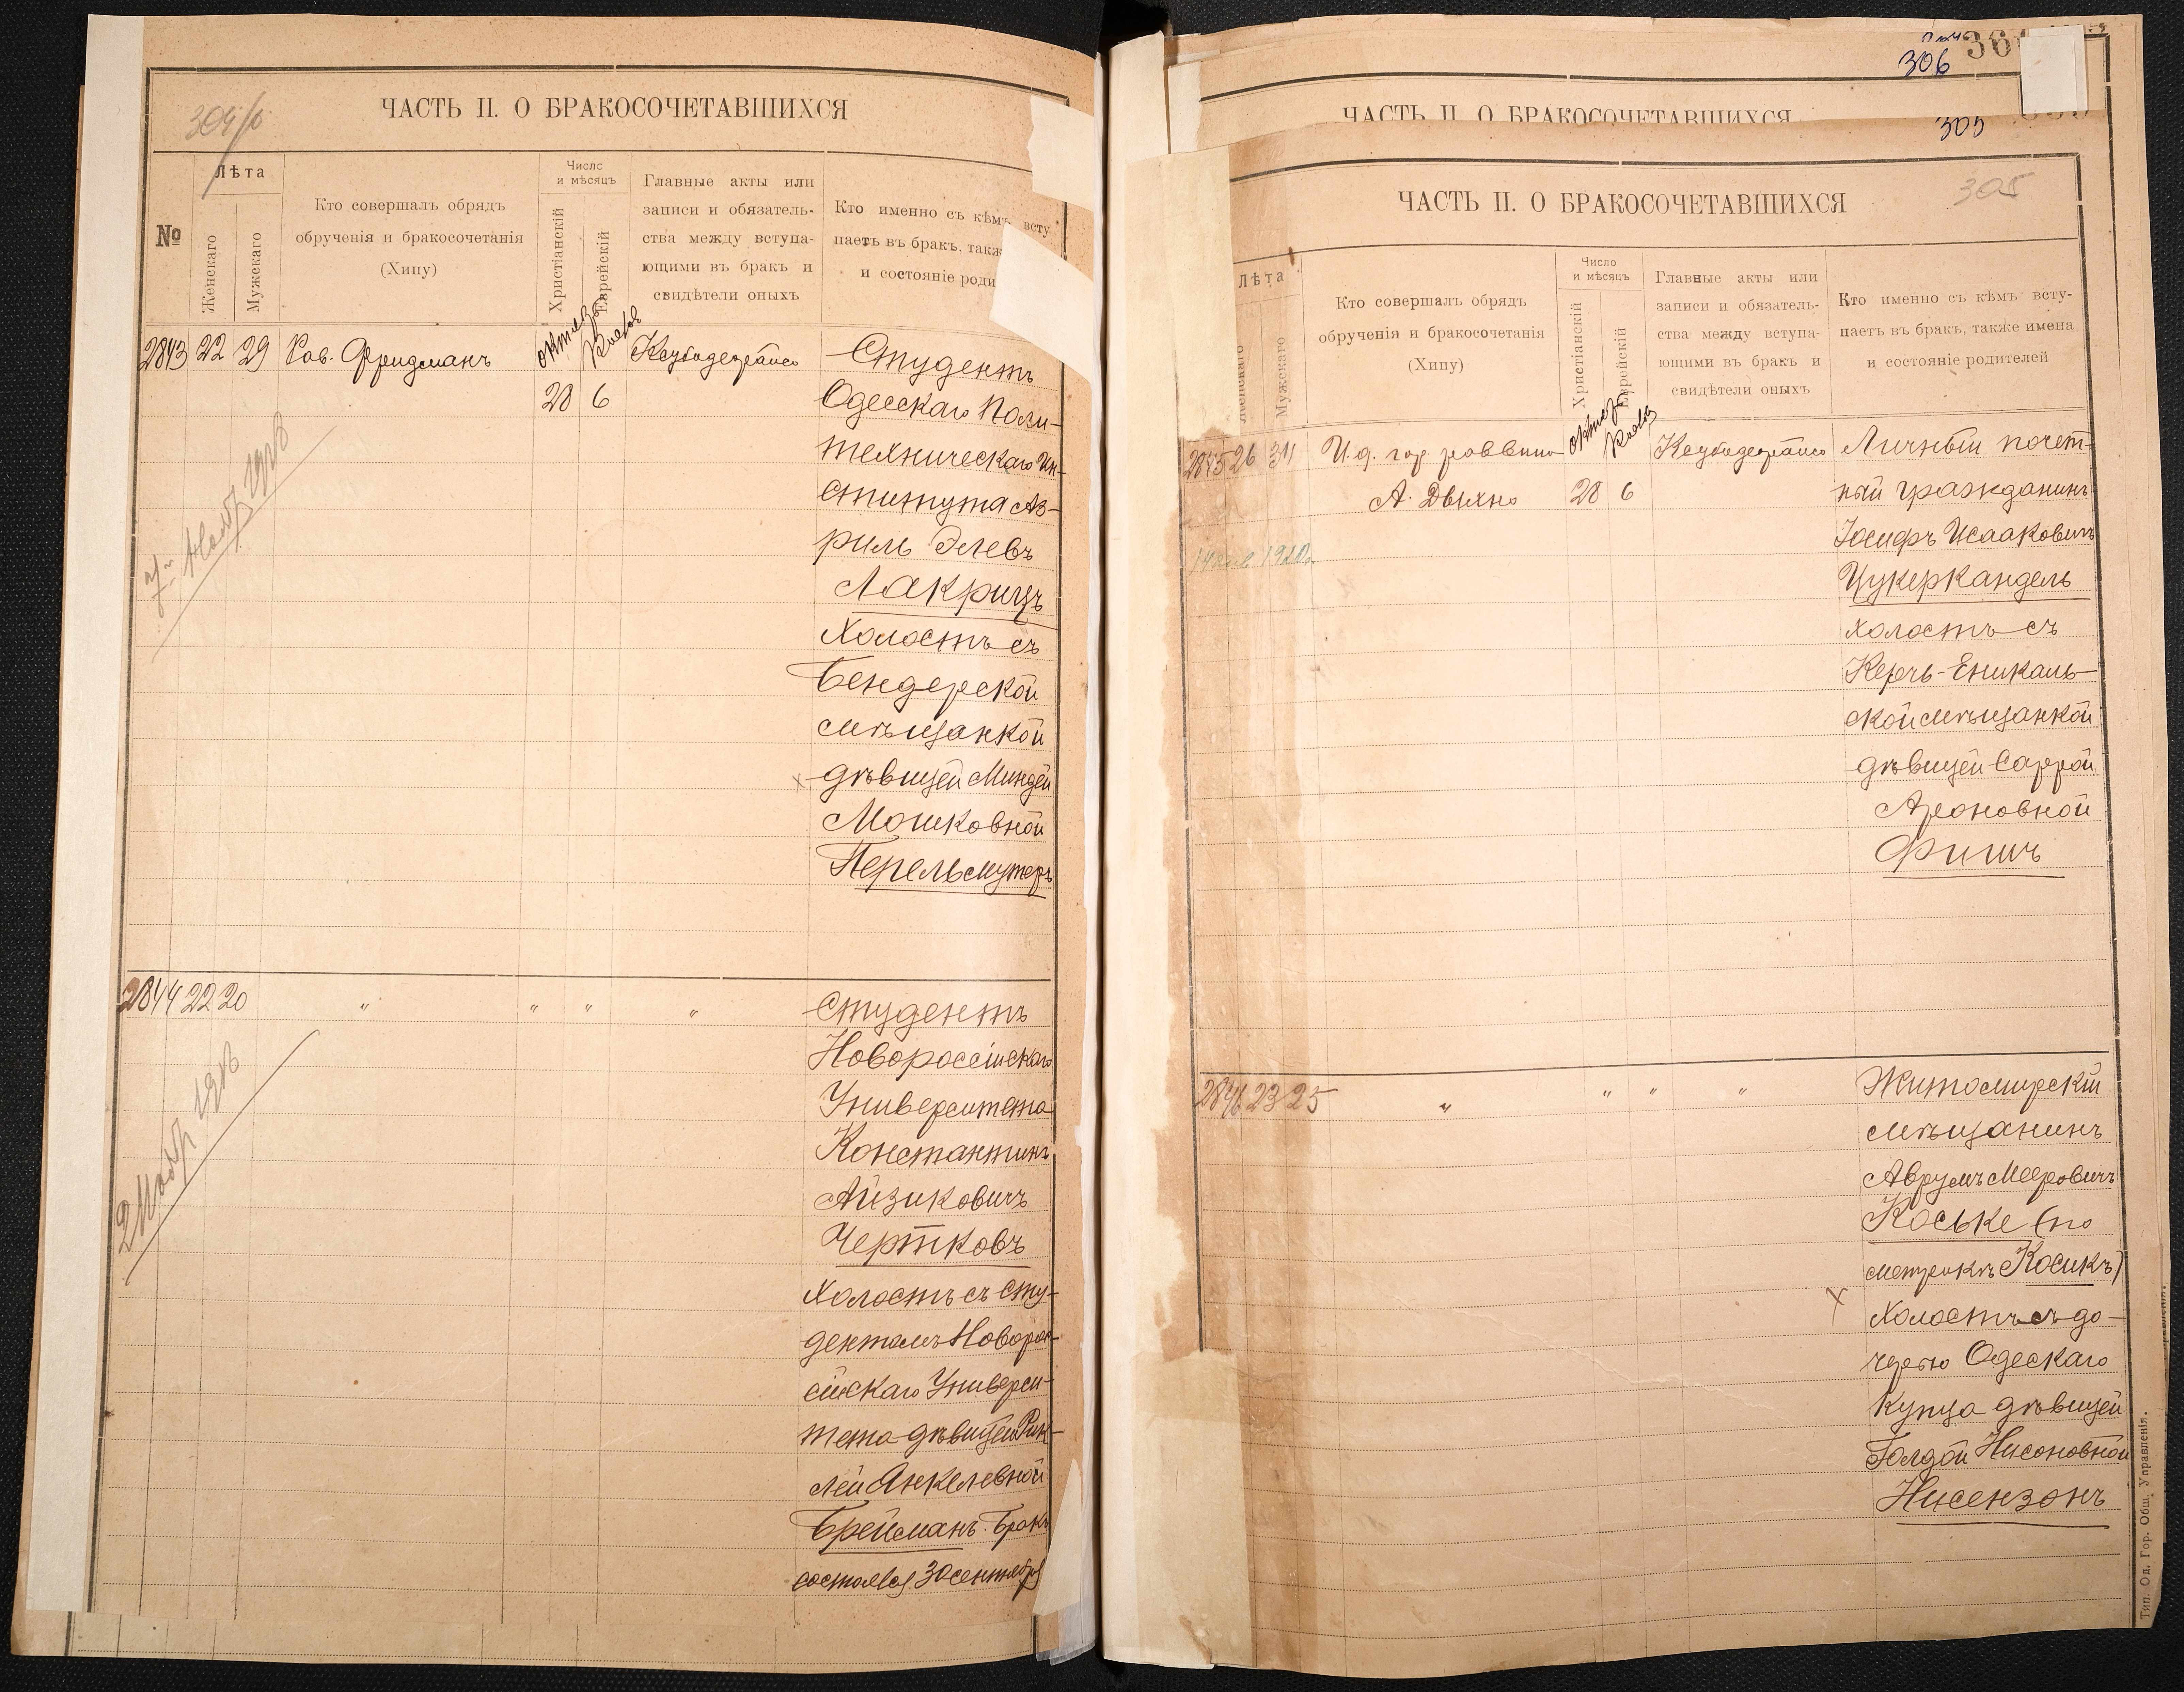 304/б
ЧАСТЬ II. О БРАКОСОЧЕТАВШИХСЯ
№
Лѣта
Женскаго
Мужскаго
Кто совершалъ обрядъ
обрученія и бракосочетанія
(Хипу)
Число
и мѣсяцъ
Христіанскій
Еврейскій
Главные акты или
записи и обязатель-
ства между вступа-
ющими въ бракъ и
свидѣтели оныхъ
Кто именно съ кѣмъ всту
паетъ въ бракъ, такж
и состояніе роди
2843 22 29 Рав. Фридманъ
28 6
Студентъ
Одесскаго Поли-
техническаго Ин-
ститута Аз-
риль Элевъ
Лакрицъ
холостъ съ
Бендерской
мѣщанкой
дѣвицей Миндей
Мошковной
Перельмутеръ
2844 22 20 " " " "
2 Ноябр 1918
Студентъ
Новороссійскаго
Университета
Константинъ
Айзиковичъ
Чертковъ
холостъ съ сту-
дентомъ Новорос-
сійскаго Универси-
тета дѣвицей Рик-
лей Янкелевной
Брейсманъ. Бракъ
состоялся 30 сентября
306
305
ЧАСТЬ II. О БРАКОСОЧЕТАВШИХСЯ
305
ЧАСТЬ II. О БРАКОСОЧЕТАВШИХСЯ
Лѣта
Женскаго
Мужскаго
Кто совершалъ обрядъ
обрученія и бракосочетанія
(Хипу)
Число
и мѣсяцъ
Христіанскій
Еврейскій
Главные акты или
записи и обязатель-
ства между вступа-
ющими въ бракъ и
свидѣтели оныхъ
Кто именно съ кѣмъ всту-
паетъ въ бракъ, также имена
и состояніе родителей
2845 26 31 И.д. гор. раввина
А. Двихно 28 6
Личный почет-
ный гражданинъ
Іосифъ Исааковичъ
Цукеркандель
холостъ съ
Керчь-Еникаль-
ской мѣщанкой
дѣвицей Саррой
Ароновной
Фишъ
2846 23 25 " " " "
Житомирскій
мѣщанинъ
Аврумъ Мееровичъ
Коське (по
метрикѣ Косикъ)
холостъ съ до-
черью Одескаго
купца дѣвицей
Голдой Нисоновной
Нисензонъ
Тип. Од. Гор. Общ. Управленія.